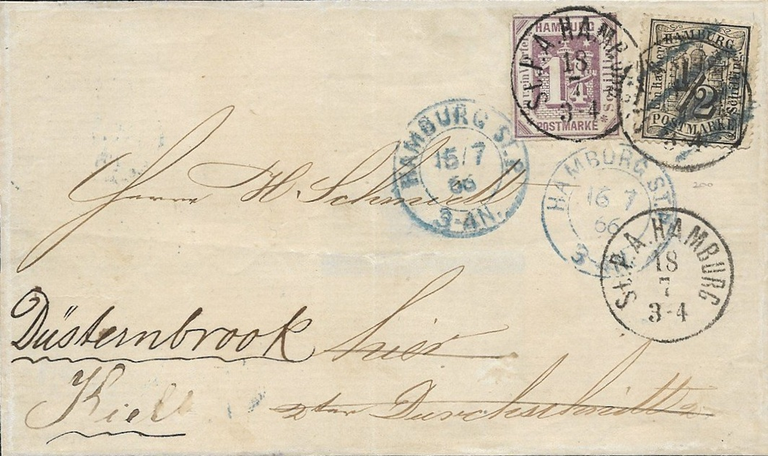 HAMBURG
1 1/4
POSTMARKE
HAMBURG
1/2
POSTMARKE
St.P.A. HAMBURG
18
7
3-4
HAMBURG St.P.
15/7
66
3-4N.
HAMBURG St.P.
16 7
66
3-
St.P.A. HAMBURG
18
7
3-4
200
Herrn H. Schmidt
Düsternbrook hier
Kiel 2ter Durchschnitt